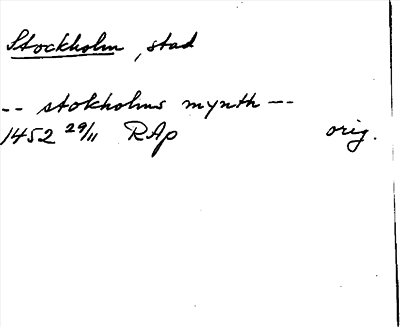 Stockholm, stad
-- stokholms mynth --
1452 29/11 RAp orig.